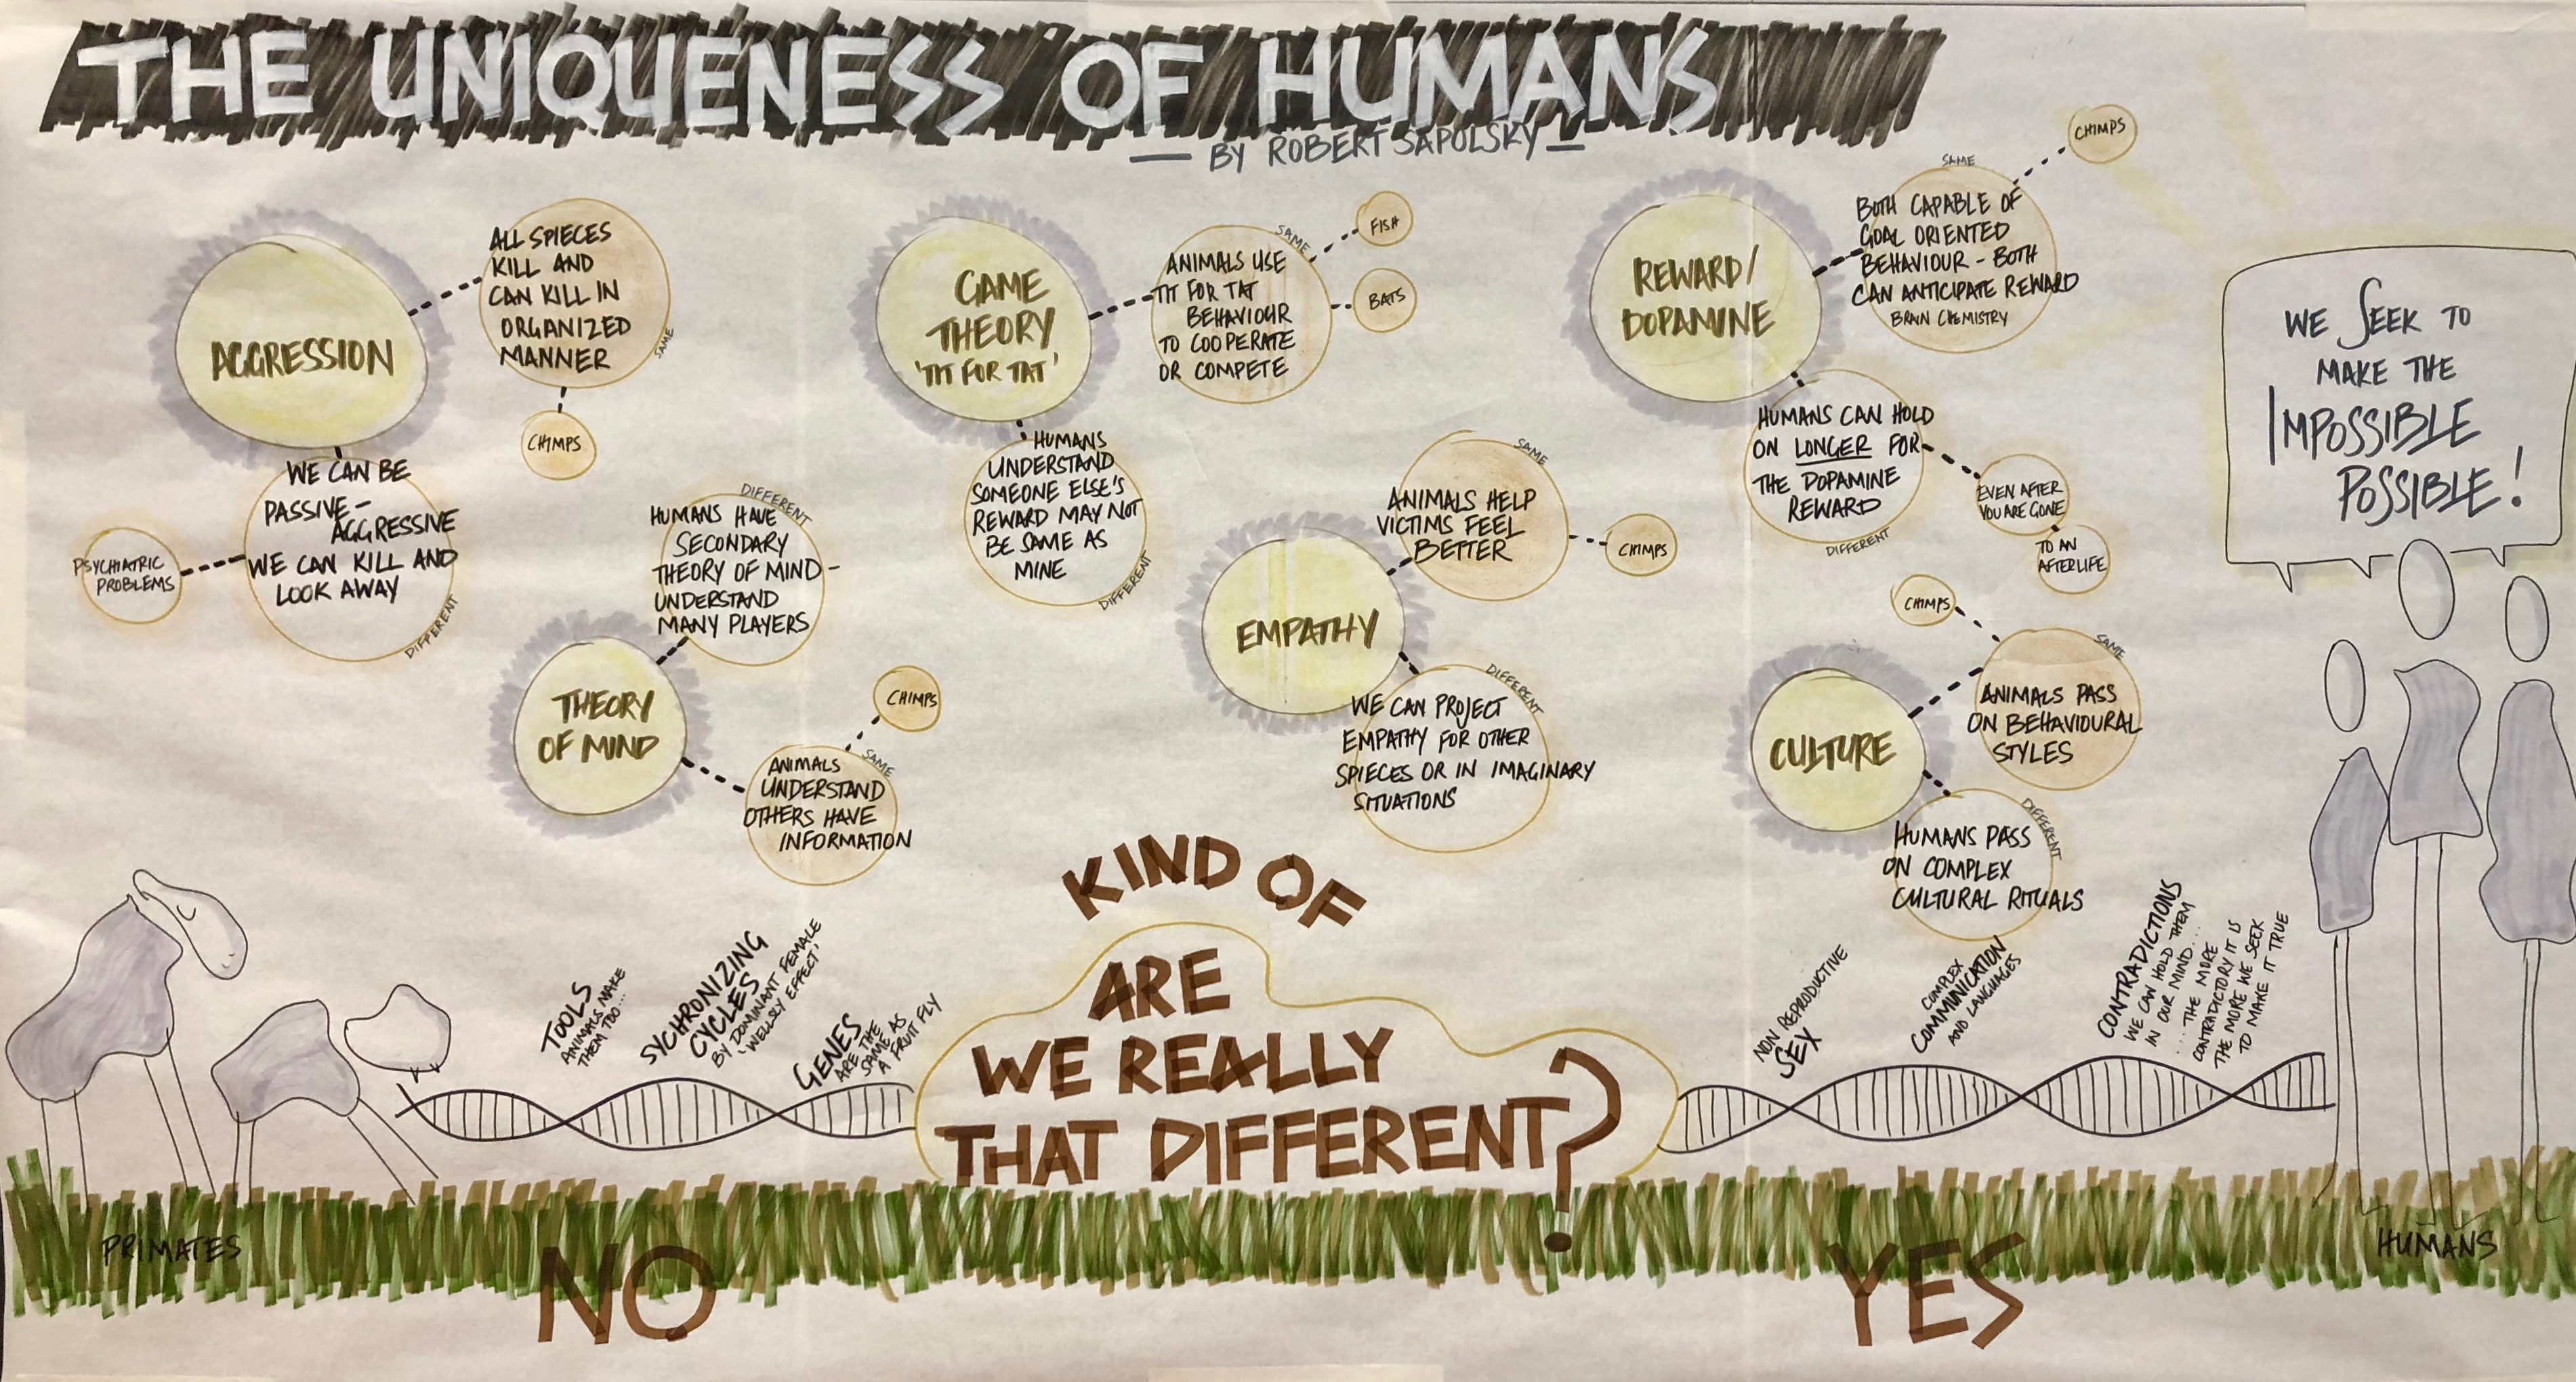 THE UNIQUENESS OF HUMANS
— BY ROBERT SAPOLSKY —
AGGRESSION
ALL SPIECES
KILL AND
CAN KILL IN
ORGANIZED
MANNER
SAME
CHIMPS
WE CAN BE
PASSIVE-
AGGRESSIVE
WE CAN KILL AND
LOOK AWAY
DIFFERENT
PSYCHIATRIC
PROBLEMS
THEORY
OF MIND
DIFFERENT
HUMANS HAVE
SECONDARY
THEORY OF MIND-
UNDERSTAND
MANY PLAYERS
CHIMPS
SAME
ANIMALS
UNDERSTAND
OTHERS HAVE
INFORMATION
GAME
THEORY
'TIT FOR TAT'
SAME
ANIMALS USE
TIT FOR TAT
BEHAVIOUR
TO COOPERATE
OR COMPETE
FISH
BATS
HUMANS
UNDERSTAND
SOMEONE ELSE'S
REWARD MAY NOT
BE SAME AS
MINE
DIFFERENT
EMPATHY
SAME
ANIMALS HELP
VICTIMS FEEL
BETTER
CHIMPS
DIFFERENT
WE CAN PROJECT
EMPATHY FOR OTHER
SPIECES OR IN IMAGINARY
SITUATIONS
REWARD/
DOPAMINE
SAME
BOTH CAPABLE OF
GOAL ORIENTED
BEHAVIOUR - BOTH
CAN ANTICIPATE REWARD
BRAIN CHEMISTRY
CHIMPS
HUMANS CAN HOLD
ON LONGER FOR
THE DOPAMINE
REWARD
DIFFERENT
EVEN AFTER
YOU ARE GONE
TO AN
AFTERLIFE
CULTURE
CHIMPS
SAME
ANIMALS PASS
ON BEHAVIOURAL
STYLES
DIFFERENT
HUMANS PASS
ON COMPLEX
CULTURAL RITUALS
WE SEEK TO
MAKE THE
IMPOSSIBLE
POSSIBLE!
TOOLS
ANIMALS MAKE
THEM TOO...
SYCHRONIZING
CYCLES
BY DOMINANT FEMALE
'WELLSLY EFFECT'
GENES
ARE THE
SAME AS
A FRUIT FLY
KIND OF
ARE
WE REALLY
THAT DIFFERENT?
NON REPRODUCTIVE
SEX
COMPLEX
COMMUNICATION
AND LANGUAGES
CONTRADICTIONS
WE CAN HOLD THEM
IN OUR MIND...
....THE MORE
CONTRADICTORY IT IS
THE MORE WE SEEK
TO MAKE IT TRUE
PRIMATES
HUMANS
NO
YES